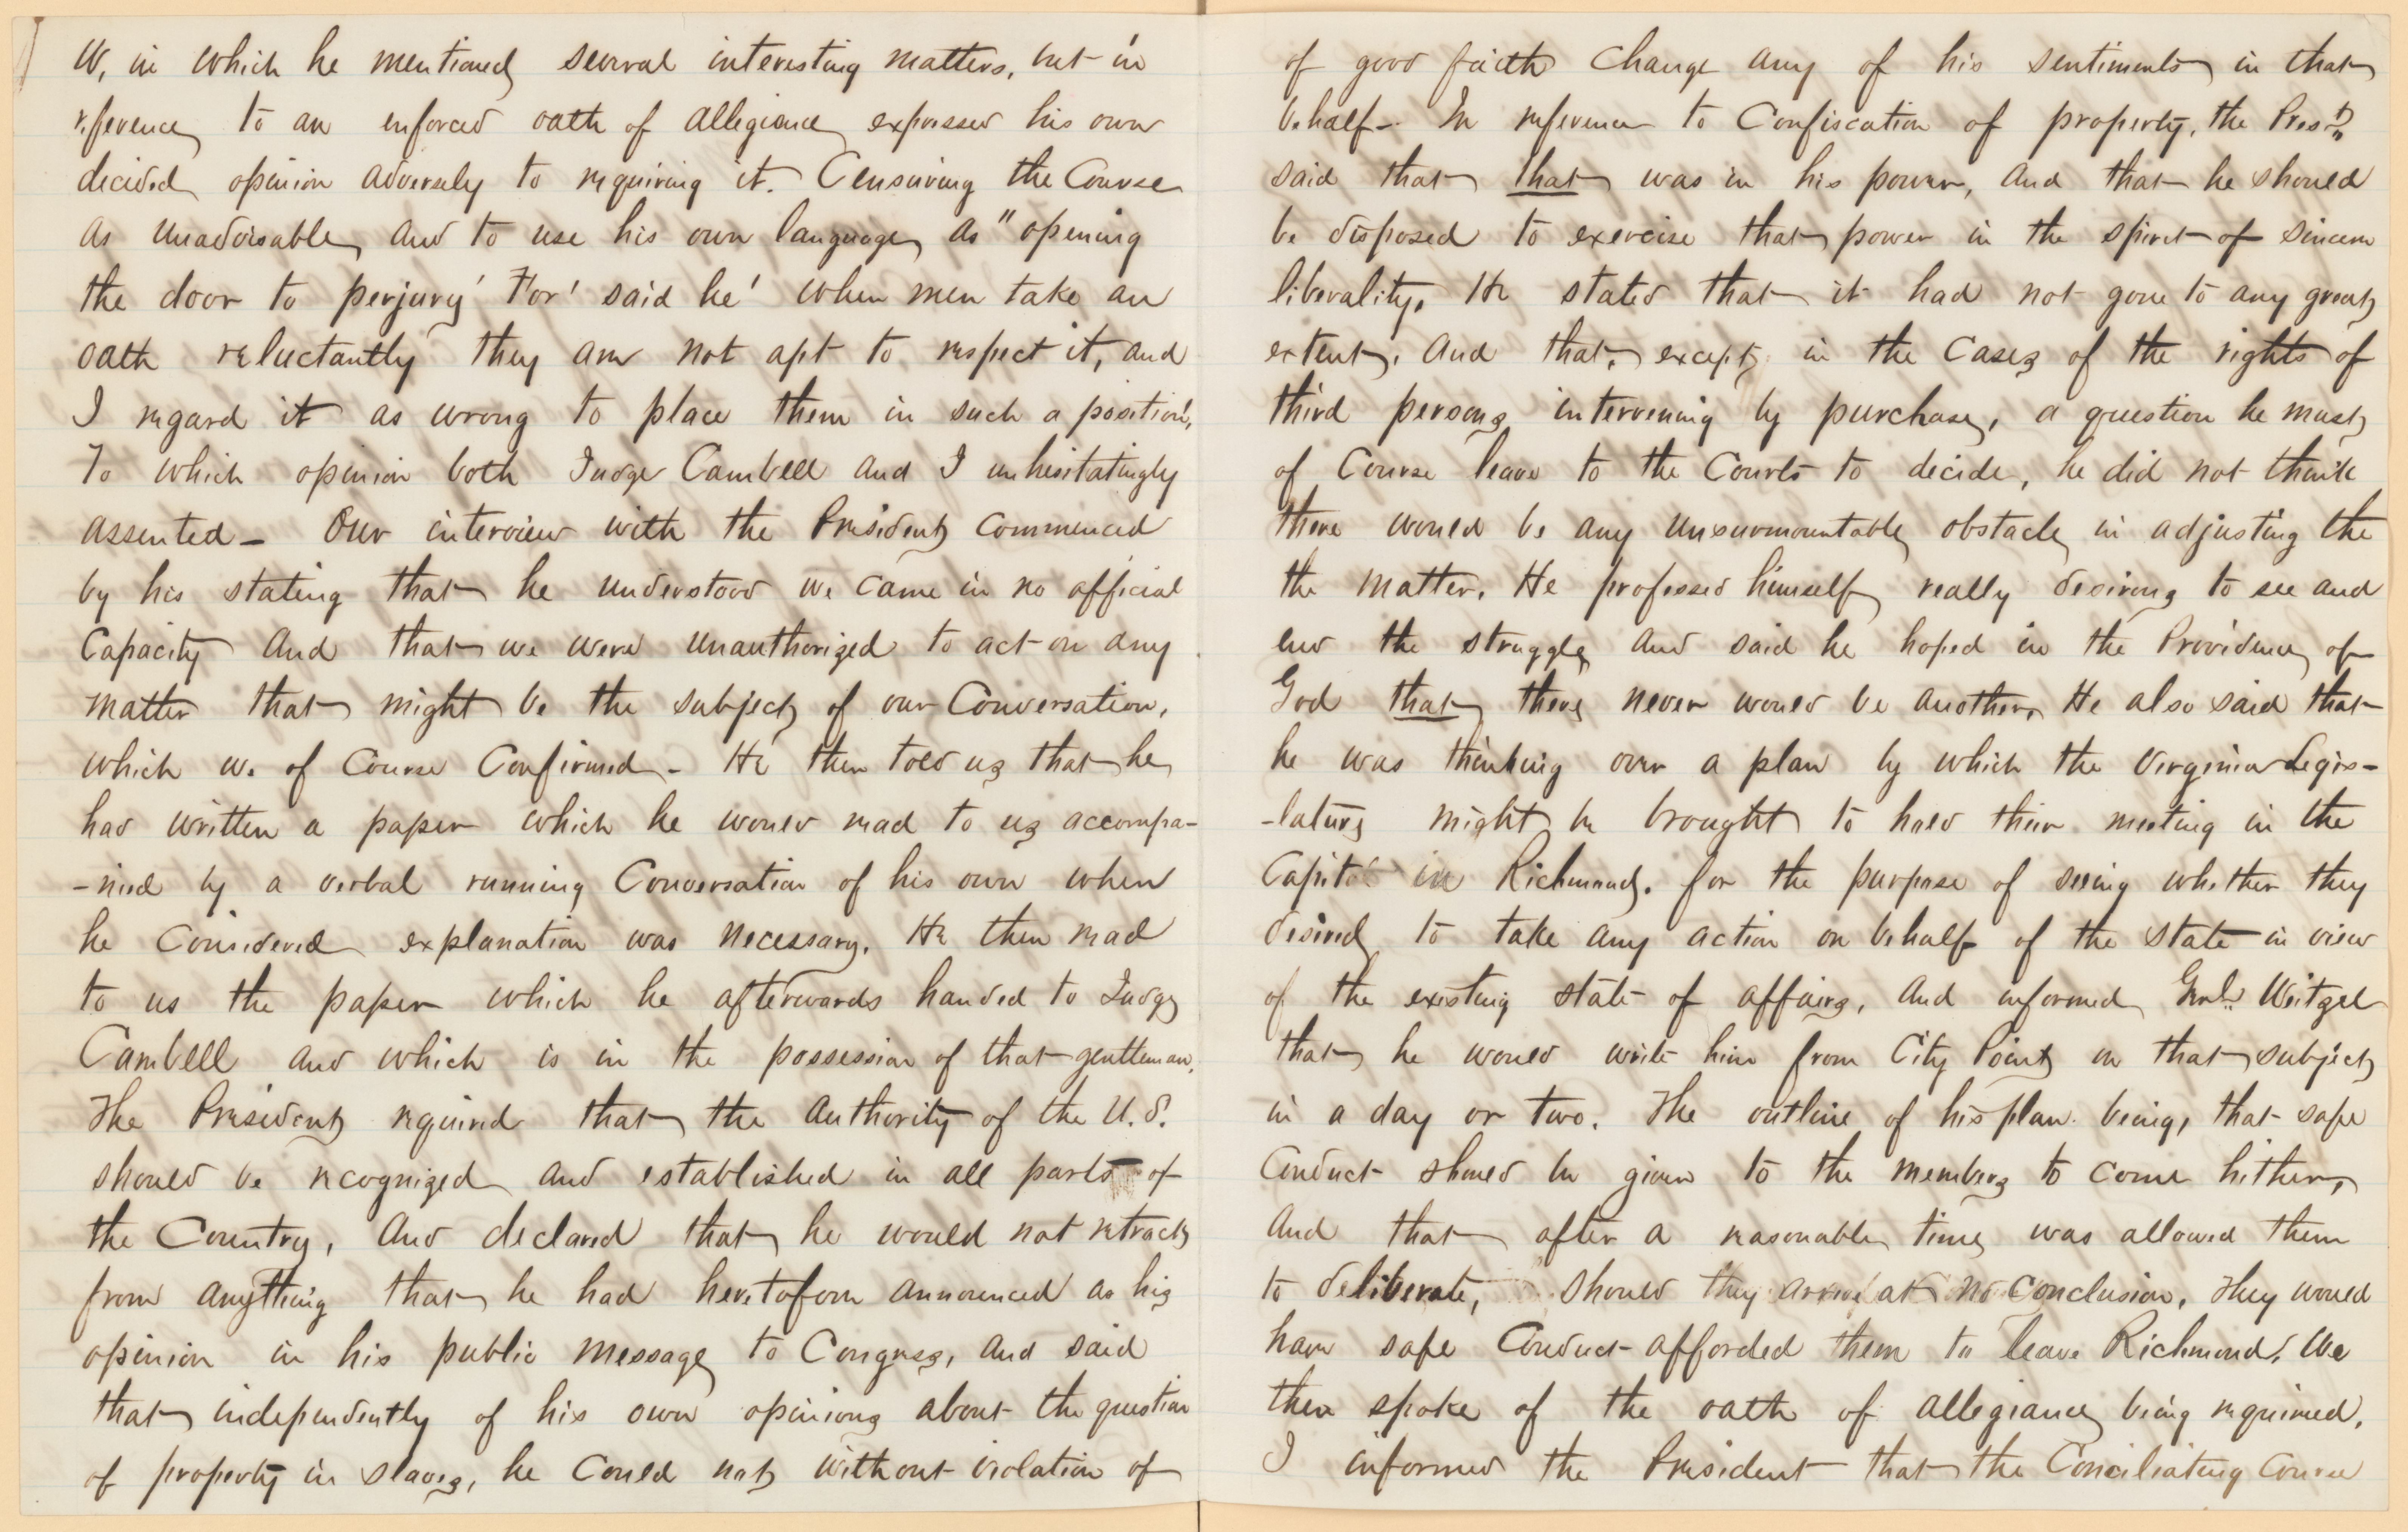 W, in which he mentioned several interesting matters, but in
reference to an enforced oath of allegiance expressed his own
decided opinion adversely to requiring it. Censuring the Course
as unadvisable, and to use his own language, as "opening
the door to perjury' For' said he' when men take an
oath reluctantly they are not apt to respect it, and
I regard it as wrong to place them in such a position',
To which opinion both Judge Cambell and I unhesitatingly
assented — Our interview with the President commenced
by his stating that he understood we came in no official
Capacity and that we were unauthorized to act on any
matter that might be the subject of our Conversation,
which we of Course Confirmed - He then told us that he
had written a paper which he would read to us accompa-
-nied by a verbal running Conversation of his own when
he Considered explanation was necessary. He then read
to us the paper which he afterwards handed to Judge
Cambell and which is in the possession of that gentleman,
The President required that the authority of the U.S.
should be recognized and established in all parts of
the Country, and declared that he would not retract
from anything that he had heretofore announced as his
opinion in his public message to Congress, and said
that independently of his own opinions about the question
of property in slaves, he Could not without violation of
of good faith Change any of his sentiments in that
behalf - In reference to Confiscation of property, the Presdt
said that that was in his power, and that he should
be disposed to exercise that power in the spirit of sincere
liberality. He stated that it had not gone to any great
extent, and that, except in the Cases of the rights of
third persons intervening by purchase, a question he must
of Course leave to the Courts to decide, he did not think
there would be any unsurmountable obstacle in adjusting the
the matter. He professed himself really desirous to see and
end the struggle, and said he hoped in the Providence of
God that there never would be another, He also said that
he was thinking over a plan by which the Virginia Legis-
-lature might be brought to hold their meeting in the
Capitol in Richmond. for the purpose of seeing whether they
desired to take any action on behalf of the state in view
of the existing state of affairs, and informed Genl. Weitzel
that he would write him from City Point on that subject
in a day or two. The outline of his plan being, that safe
Conduct should be given to the members to come hither,
and that after a reasonable time was allowed them
to deliberate, should they arrive at no Conclusion, they would
have safe Conduct afforded them to leave Richmond. We
then spoke of the oath of allegiance being required,
I informed the President that the Conciliating course